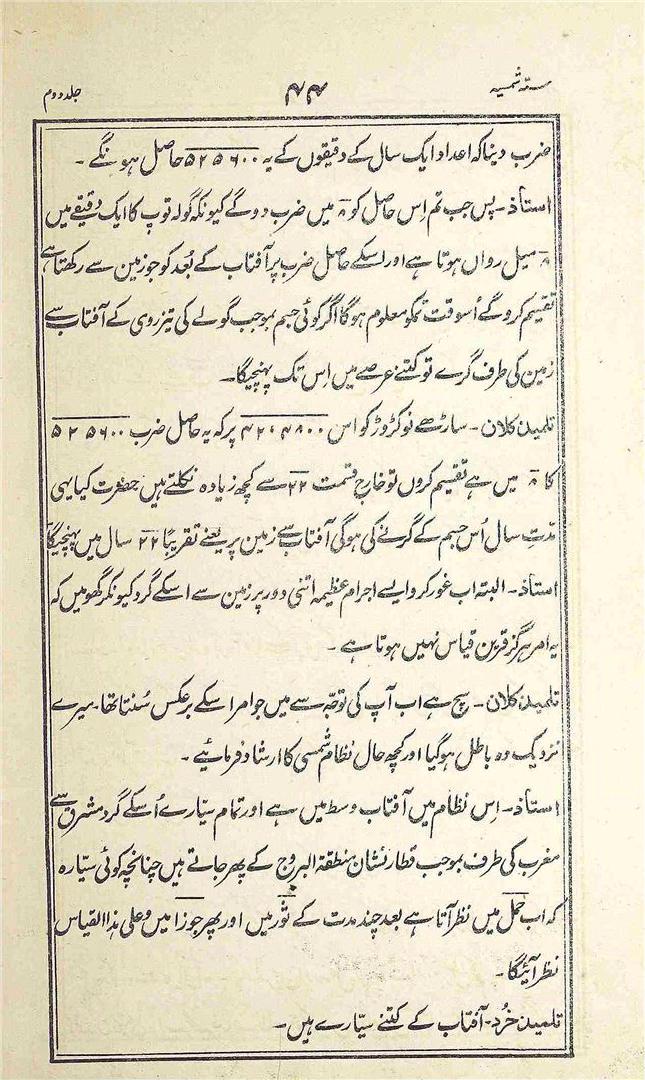 ستہ شمسیہ ۴۴ جلد دوم
ضرب دینا کہ اعداد ایک سال کے دقیقوں کے یہ ۵۲۵۶۰۰ حاصل ہونگے ۔
استاذ ۔ پس جب تم اِس حاصل کو ۸ میں ضرب دو گے کیونکہ گولہ توپ کا ایک دقیقے میں
۸ میل رواں ہوتا ہے اور اسکے حاصل ضرب پر آفتاب کے بُعد کو جو زمین سے رکھتا ہے
تقسیم کرو گے اُسوقت تمکو معلوم ہوگا اگر کوئی جسم بموجب گولے کی تیزروی کے آفتاب سے
زمین کی طرف گرے تو کتنے عرصے میں اِس تک پہنچیگا ۔
تلمیذ کلان ۔ ساڑھے نو کڑوڑ کو اس ۴۲۰۴۸۰۰ پر کہ یہ حاصل ضرب ۵۲۵۶۰۰
کا ۸ میں ہے تقسیم کروں تو خارج قسمت ۲۲ سے کچھ زیادہ نکلتے ہیں حضرت کیا یہی
مدّتِ سال اُس جسم کے گرنے کی ہوگی آفتاب سے زمین پر یعنے تقریبًا ۲۲ سال میں پہنچیگا
استاذ ۔ البتہ اب غور کرو ایسے اجرام عظیمہ اتنی دور پر زمین سے اسکے گرد کیونکر گھومیں کہ
یہ امر ہرگز قرین قیاس نہیں ہوتا ہے ۔
تلمیذ کلان ۔ سچ ہے اب آپ کی توجّہ سے میں جو امر اسکے برعکس سُنتا تھا ۔ میرے
نزدیک وہ باطل ہوگیا اور کچھ حال نظام شمسی کا ارشاد فرمائیے ۔
استاذ ۔ اِس نظام میں آفتاب وسط میں ہے اور تمام سیّارے اُسکے گرد مشرق سے
مغرب کی طرف بموجب قطار نشان منطقۃ البروج کے پھر جاتے ہیں چنانچہ کوئی سیّارہ
کہ اب حمل میں نظر آتا ہے بعد چند مدت کے ثور میں اور پھر جوزا میں و علیٰ ہذا القیاس
نظر آئیگا ۔
تلمیذ خُرد ۔ آفتاب کے کتنے سیّارے ہیں ۔